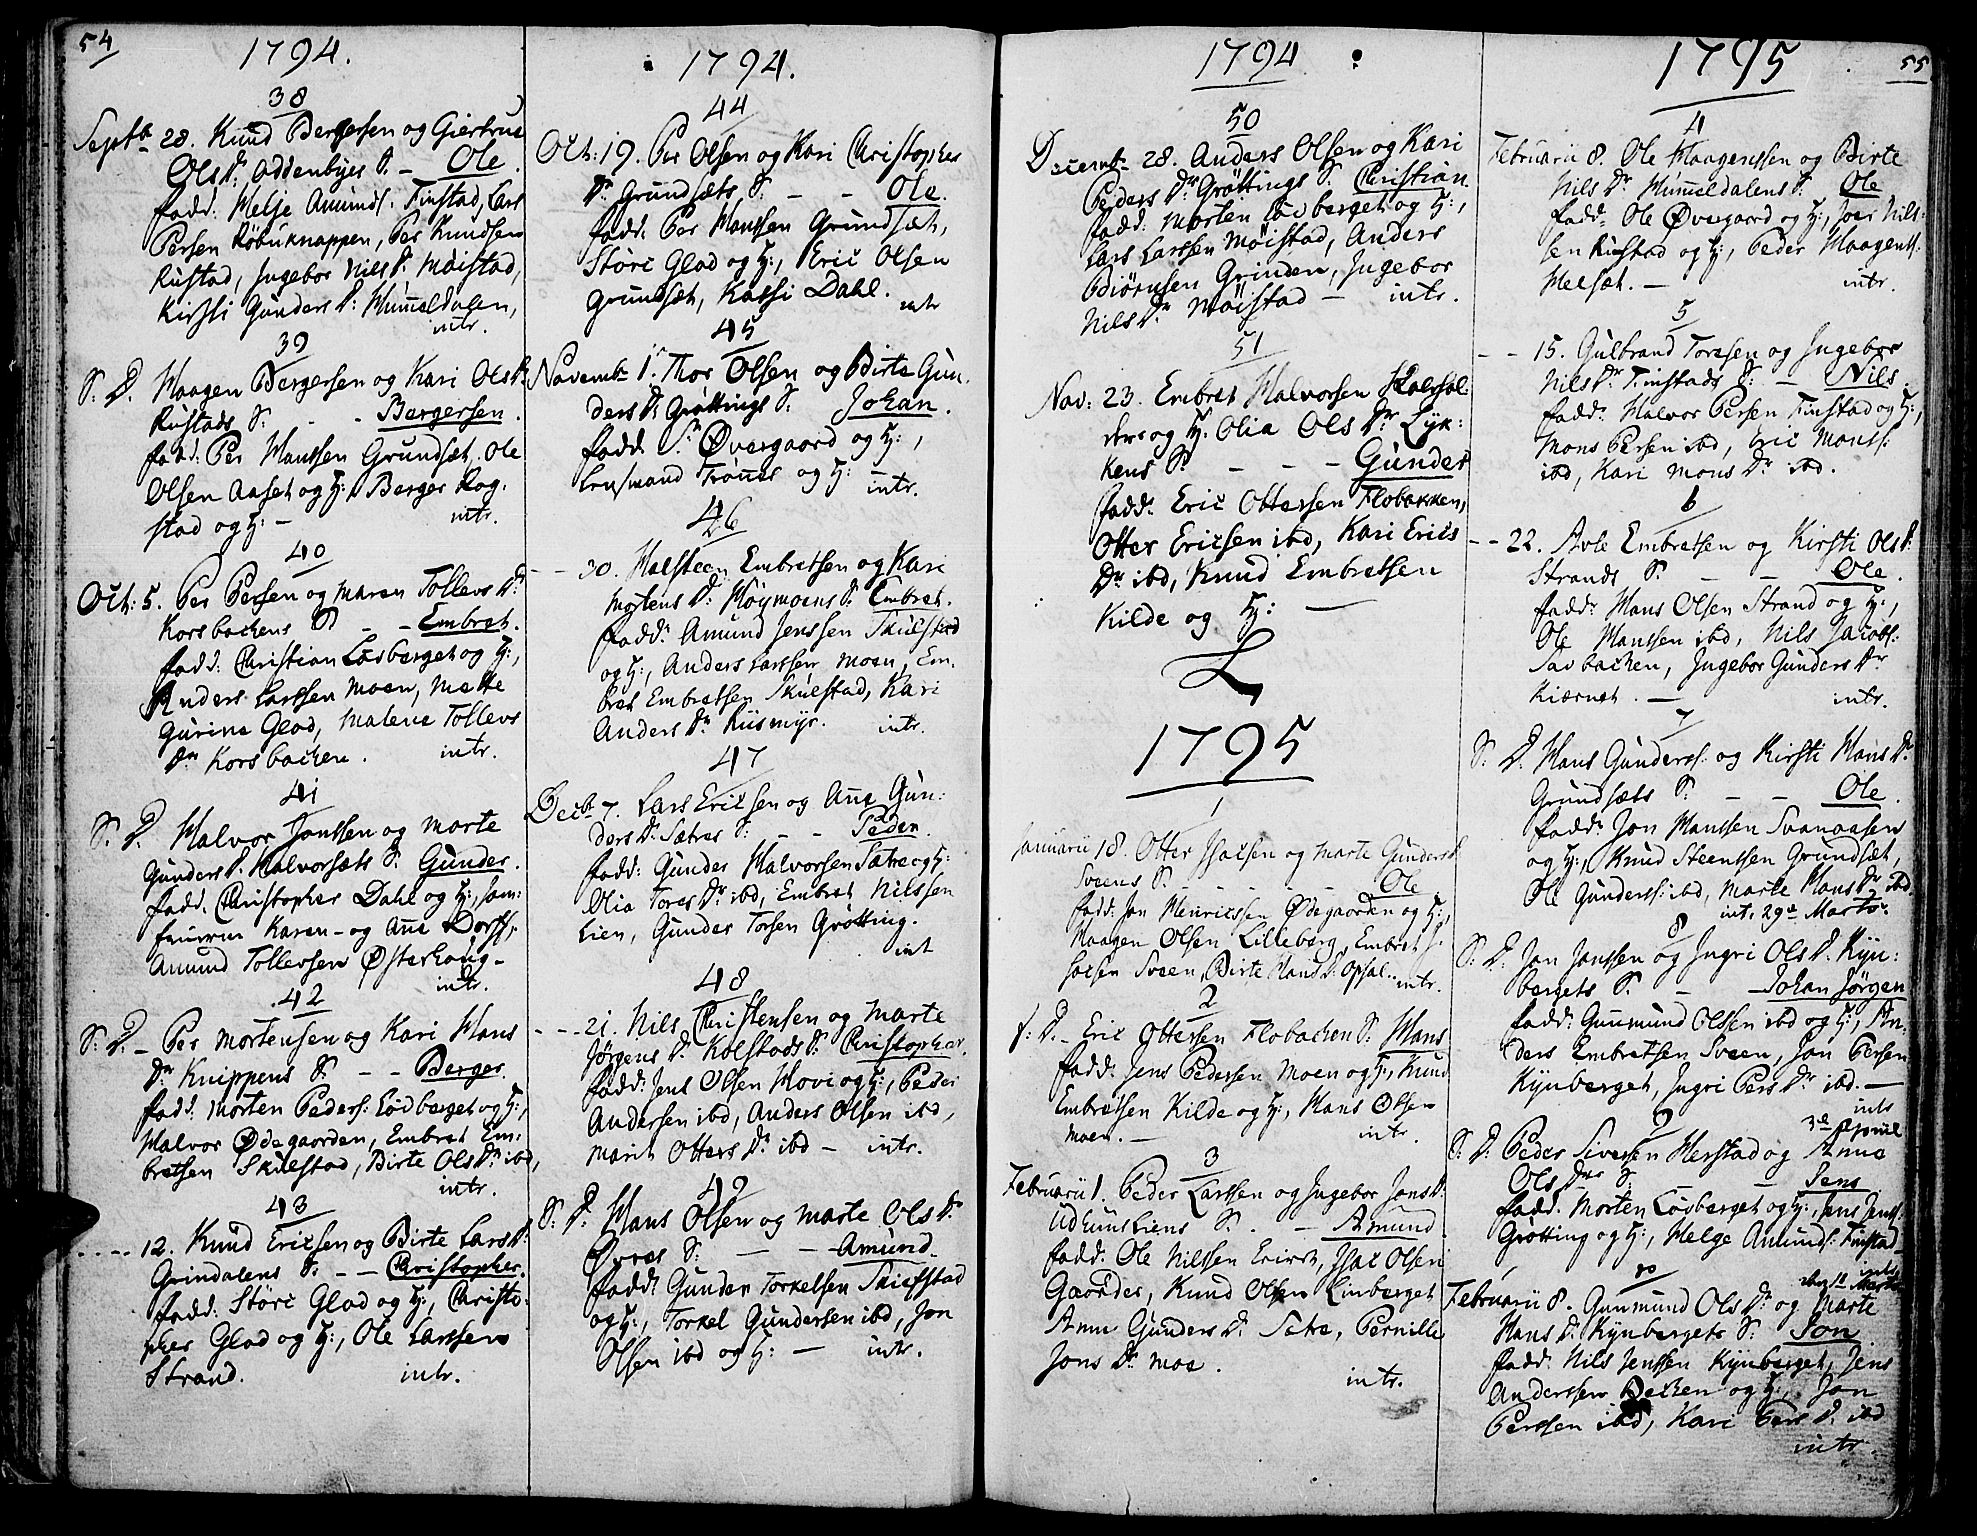 54
1794.
38
Septb. 28. Knud Bergersen og Giertrud
Ols D: Oddenbyes S. – Ole.
fadd: Helje Amunds. Finstad, Lars
Persen Röbuknappen, Per Knudsen
Rustad, Ingebor Nils D: Möistad,
Kirsti Gunders D: Hummeldalen,
intr.
39
S: D. Haagen Bergersen og Kari Ols D:
Rustads S: - - Bergersen.
fadd: Per Hanssen Grundsæt, Ole
Olsen Aaset og H:, Berger Rog-
stad og H: – intr.
40
Oct: 5. Per Persen og Maren Tollevs D:
Korsbackens S. – – Embret.
fadd: Christian Lösberget og H:,
Anders Larssen Moen, Mette
Gurina Glad, Malene Tollevs
Dr Korsbacken. intr.
41
S: D. Halvor Jonssen og Marte
Gunders D. Halvorsæts S. Gunder.
fadd. Christopher Dahl og H:, Jom-
fruerne Karen- og Ane Dorff,
Amund Tollevsen Østerhaug –
intr.
42
S: D. – Per Mortensen og Kari Hans
Dr Knippens S. – – Berger.
fadd. Morten Peders: Lödberget og H:,
Halvor Ødegaarden, Embret Em:
bretsen Skulstad, Birte Ols Dr ibd,
intr.
43
- - - - 12. Knud Ericsen og Birte Lars D:
Grindalens S: – – Christopher.
fadd: Störc Glad og H:, Christo-
pher Glad og H:, Ole Larssen
Strand. intr.
1794.
44
Oct: 19. Per Olsen og Kari Christopher
Dr Grundsæts S. – – Ole.
fadd. Per Hanssen Grundsæt,
Störc Glad og H:, Eric Olsen
Grundsæt, Kassi Dahl. intr
45
Novembr 1. Thor Olsen og Birte Gun-
ders Dr Gröttings S. Johan.
fadd. Sr Övergaard og H:,
Lensmand Trönnes og H: intr.
46
- - 30. Halsteen Embretsen og Kari
Mortens D: Höymoens S: Embret.
fadd: Amund Jenssen Skulstad
og H:, Anders Larssen Moen, Em-
bret Embretsen Skulstad, Kari
Anders Dr Riismyr. intr.
47
Decb. 7. Lars Ericsen og Ane Gun-
ders D: Sætres S: – – Peder.
fadd: Gunder Halvorsen Sætre og H:
Olia Tores Dr ibd, Embret Nilssen
Lien, Gunder Torsen Grötting.
int
48
- - - 21. Nils Christensen og Marte
Jörgens D. Kolstads S: Christopher.
fadd: Jens Olsen Hovi og H:, Peder
Andersen ibd, Anders Olsen ibd,
Marit Otters Dr ibd – intr.
49
S: D: Hans Olsen og Marte Ols Dr
Övres S: – – Amund.
fadd: Gunder Torkelsen Skiefstad
og H:, Torkel Gundersen ibd, Jon
Olsen ibd og H: – intr.
1794
50
Decembr 28. Anders Olsen og Kari
Peders Dr Gröttings S. Christian.
fadd: Morten Lövberget og H:,
Lars Larssen Möistad, Anders
Biörnsen Grinden, Ingebor
Nils Dr Möistad – intr.
51
Nov: 23. Embret Halvorsen
og H: Olia Ols Dr Lyk:
kens S. – – – Gunder
fadd: Eric Ottersen Flobakken,
Otter Ericsen ibd, Kari Erics
Dr ibd, Knud Embretsen
Kilde og H: –
1795
1
Januarii 18. Otter Isacsen og Marte Gunders D
Sveens S. – – – Ole
fadd. Jon Henricssen Ødegaarden og H:,
Haagen Olsen Lilleberg, Embret I-
sacsen Sveen, Birte Hans D: Opsal. intr.
2
f: D. – Eric Ottersen Flobacken S: Hans
fadd: Jens Pedersen Moen og H:, Knud
Embretsen Kilde og H:, Hans Olsen
Moen. – intr.
3
Februarii 1. Peder Larssen og Ingebor Jons D:
Udhuusliens S. – Amund
fadd: Ole Nilssen, Isac Olsen
Gaarder, Knud Olsen Linberget
Anne Gunders D. Setre, Pernille
Jons Dr Moe. intr.
1795
55
4
Februarii 8. Ole Haagenssen og Birte
Nils Dr Hummeldalens S. Ole
fadd: Ole Övergaard og H:, Joer Nils-
sen Rustad og H:, Peder Haagens:
Melsæt. – intr.
5
– – 15. Gulbrand Toresen og Ingebor
Nils Dr Finstads S: – Nils.
fadd: Halvor Persen Finstad og H:,
Mons Persen ibd, Eric Monss:
ibd, Kari Mons Dr ibd.
6
– – 22. Avle Embretsen og Kirsti Ols D.
Strands S. – – Ole.
fadd: Hans Olsen Strand og H:,
Ole Hanssen ibd, Nils Jacobs:
Savbacken, Ingebor Gunders Dr
Kiærnet. – intr.
7
S: D. Hans Gunders: og Kirsti Hans Dr
Grundsæts S. – – Ole.
fadd: Jon Hanssen Svanaasen
og H:, Knud Steentsen Grundsæt,
Ole Gunderss: ibd, Marte Hans Dr ibd
intr. 29de Marts.
8
S: D: Jon Jonssen og Ingri Ols D. Kyn:
bergets S. – Johan Jörgen
fadd: Gunmund Olssen ibd og H:, An-
ders Embretsen Sveen, Jon Persen
Kynberget, Ingri Pers Dr ibd. –
intr
3de April
9
S: D: Peder Sivertsen Herstad og Anne
Ols Dr S: – – Jens
fadd. Morten Lösberget og H:, Jens Jens:
Grötting og H:, Helge Amunds: Finstad
intr
10
Februarii 8. Gunmund Ols Dr og Marte
Hans D: Kynbergets S: Jon
fadd: Nils Jenssen Kynberget, Jens
Anderssen Backen og H:, Jon
Perssen ibd, Kari Pers D. ibd
intr